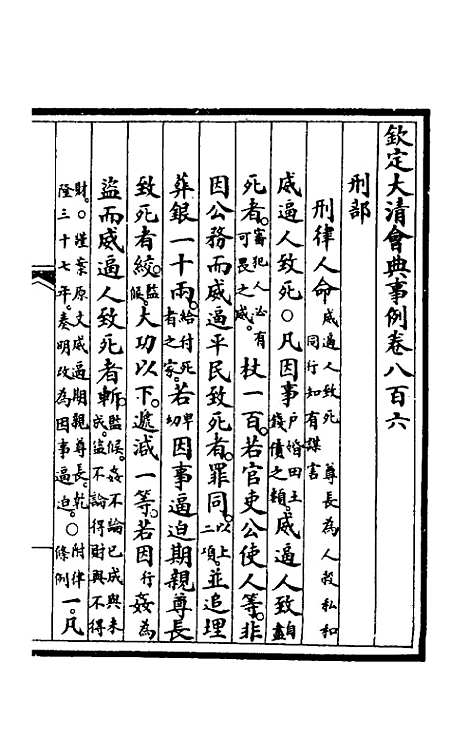 欽定大清會典事例卷八百六
刑部
刑律人命威逼人致死 尊長為人殺私和同行知有謀害
威逼人致死○凡因事戶婚田土錢債之類。威逼人致自盡
死者。審犯人必有可畏之威。杖一百。若官吏公使人等。非
因公務而威逼平民致死者。罪同。以上二項。並追埋
葬銀一十兩。給付死者之家。若卑幼因事逼迫期親尊長
致死者絞。監候。大功以下。遞減一等。若因行姦為
盜而威逼人致死者斬。監候。姦不論已成與未成。盜不論得財與不得
財。○謹案原文威逼期親尊長。乾隆三十七年。奏明改為因事逼迫。○附律條例一。凡